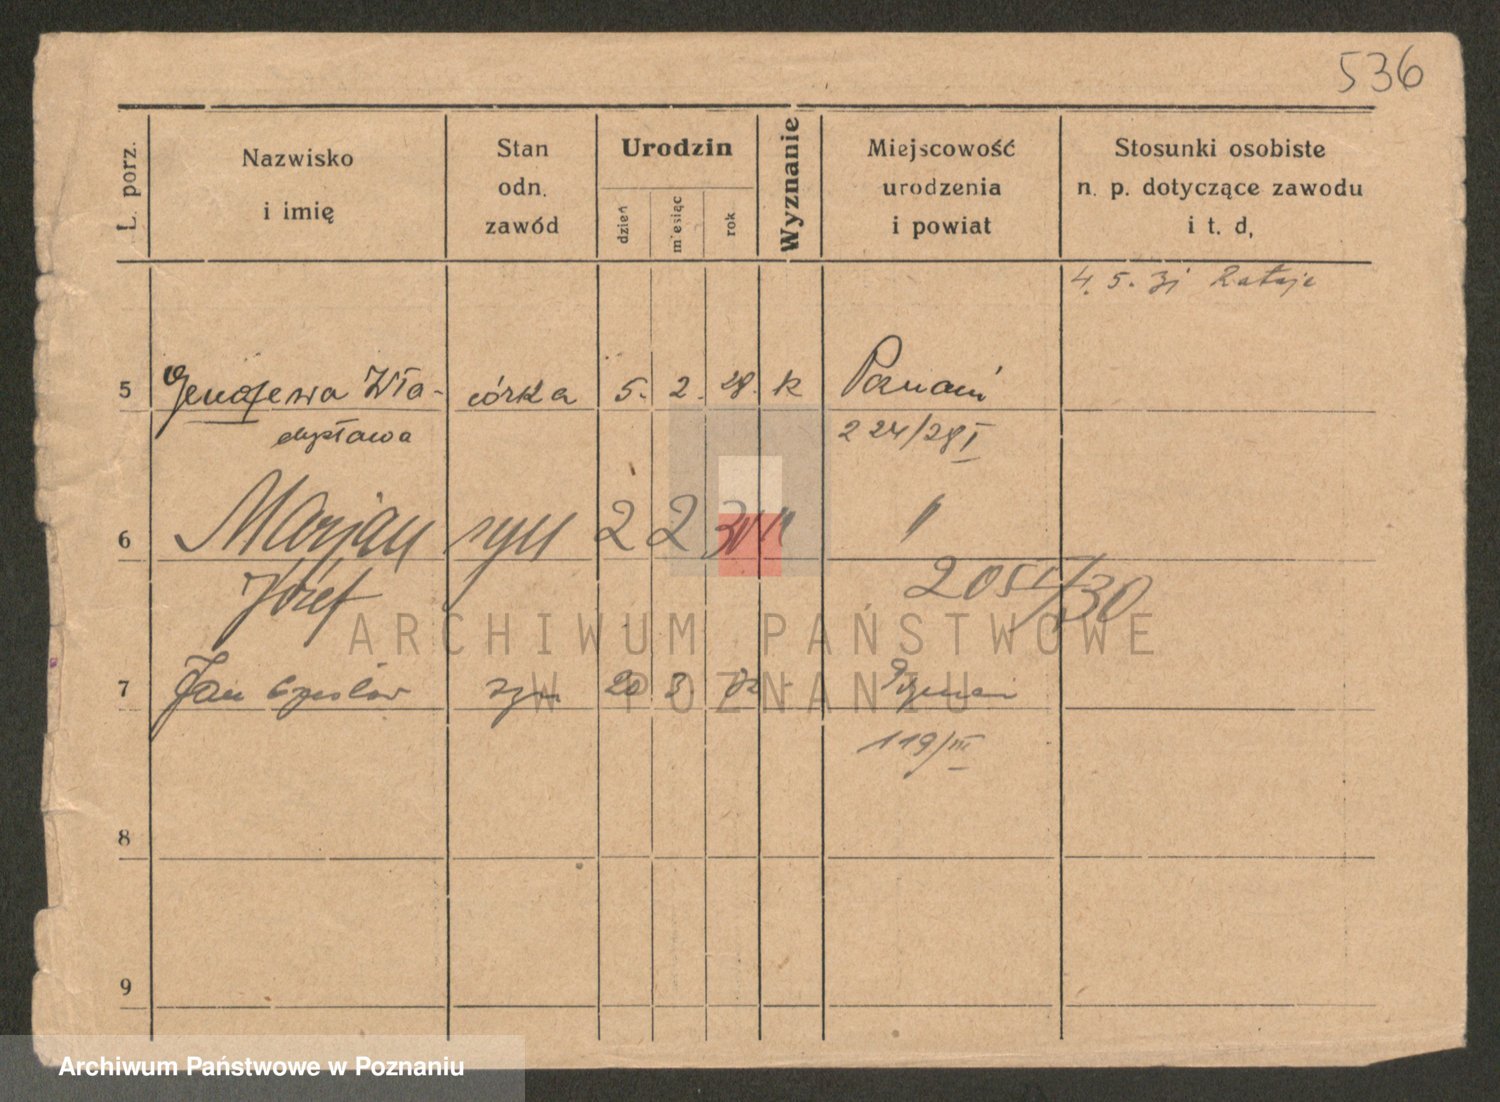 536
L. porz.
Nazwisko
i imię
Stan
odn.
zawód
Urodzin
dzień
miesiąc
rok
Wyznanie
Miejscowość
urodzenia
i powiat
Stosunki osobiste
n. p. dotyczące zawodu
i t. d,
4. 5. 31 Rataje
5 Genowefa Wła- córka 5. 2. 28. k Poznań
dysława 224/28 I
6 Marjan syn 2 2 30 k "
Józef
7 Jan Czesław syn 20 3. Poznań
119/III
8
9
ARCHIWUM PAŃSTWOWE
W POZNANIU
Archiwum Państwowe w Poznaniu